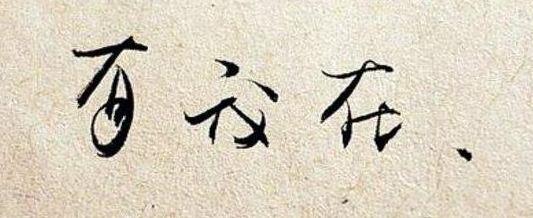 有我在、